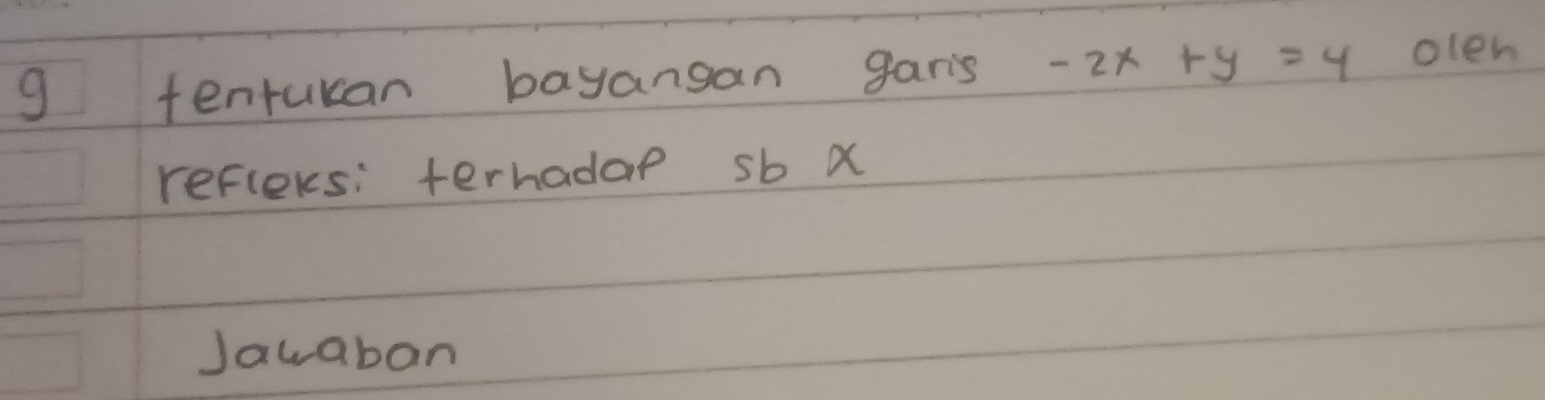 9 tentukan bayangan garis -2x + y = 4 oleh
refleksi terhadap sb x
Jawaban